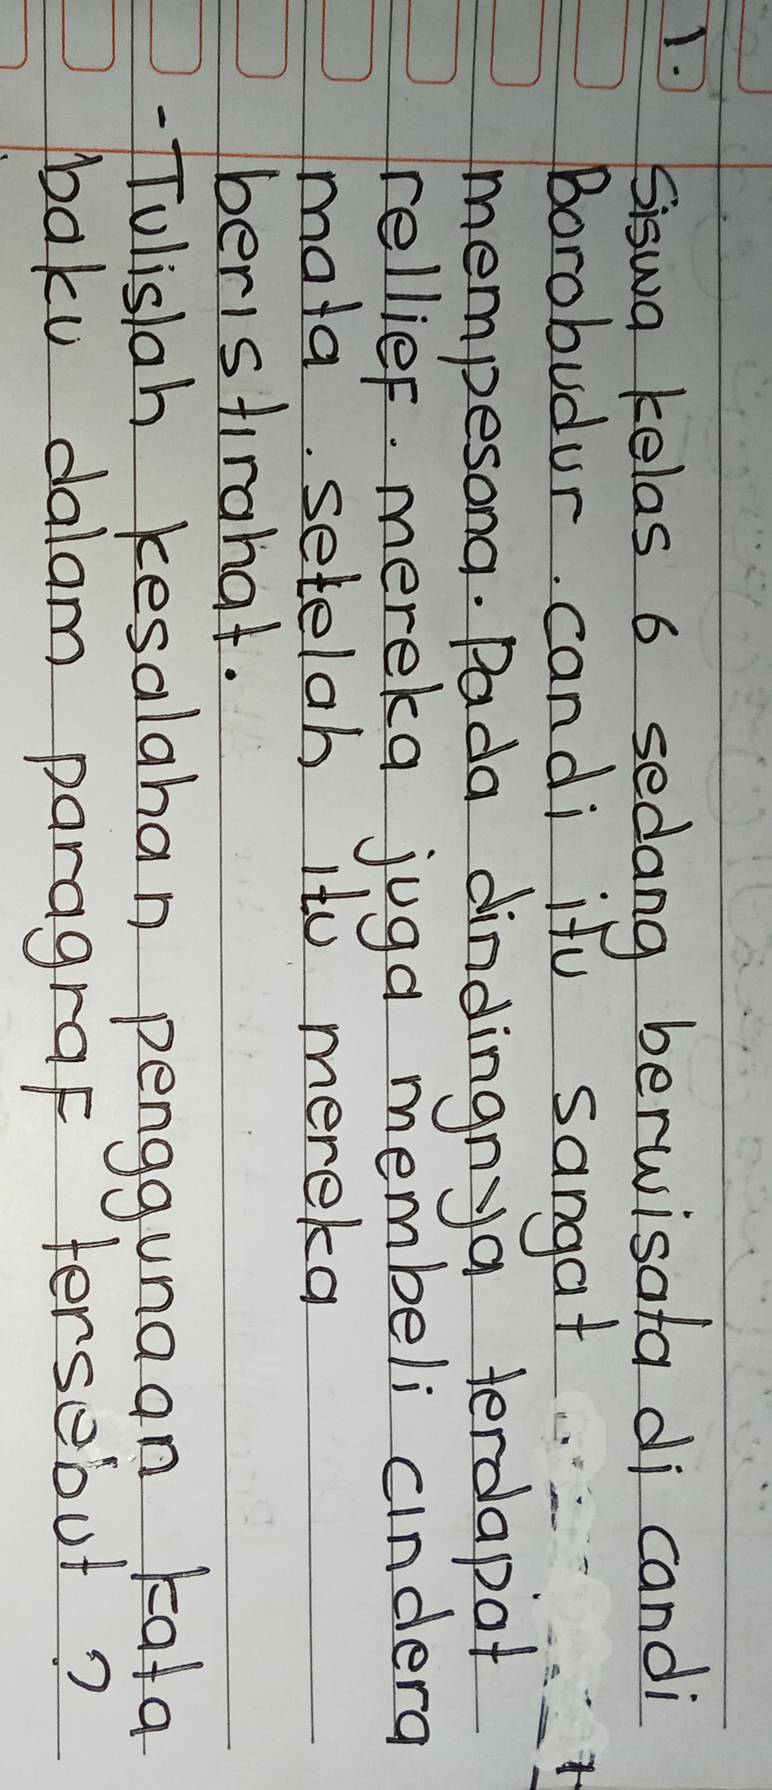 1. Siswa kelas 6 sedang berwisata di candi
Borobudur. candi itu sangat
mempesona. Pada dindingnya terdapat
rellief. mereka juga membeli cindera
mata. setelah itu mereka
beristirahat.
- Tulislah kesalahan penggunaan kata
baku dalam paragraf tersebut ?